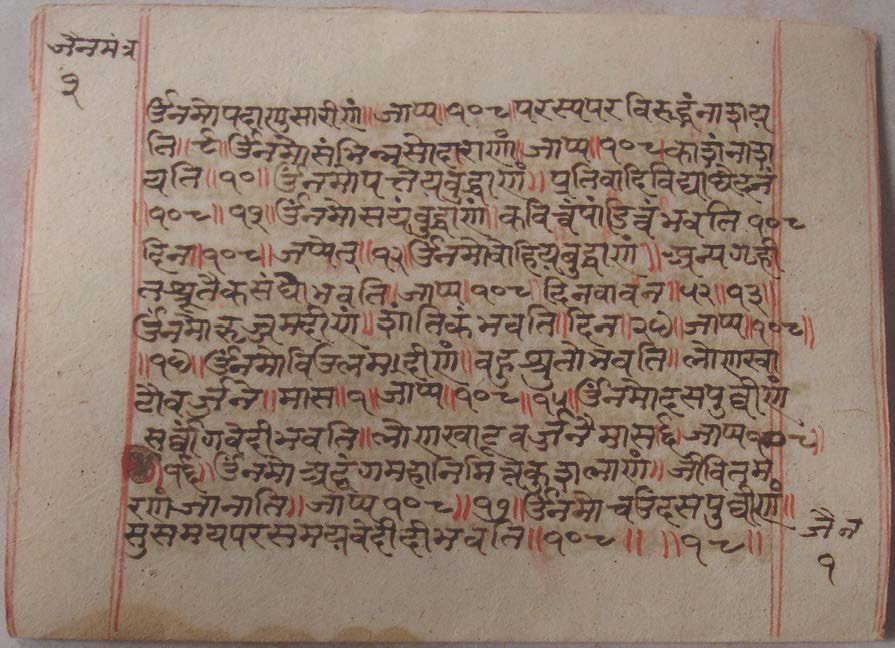 जैनमंत्र
१
ॐनमोपदाणुसारीणं॥जाप्प॥१०८परस्पपरविरुद्धंनाशय
ति॥९॥ॐनमोसंभिन्नसोदाराणं॥जाप्प॥१०८काशंनाश
यति॥१०॥ॐनमोपत्तेयबुद्धाणं॥प्रतिवादिविद्याछेदनं
॥१०८॥११॥ॐनमोसयंबुद्धाणं॥कवित्वंपांडित्वंभवति१०८
दिन॥१०८॥जप्पेत्॥१२॥ॐनमोबोहियबुद्धाणं॥अन्यगृही
तश्रुतैकसंधोभवति॥जाप्प॥१०८॥दिनबावन॥५२॥१३॥
ॐनमोऋजुमदीणं॥शांतिकंभवति॥दिन॥२४॥जाप्प॥१०८॥
॥१४॥ॐनमोविउलमदीणं॥बहुश्रुतोभवति॥लोणखा
टोवर्जने॥मास॥१॥जाप्प॥१०८॥१५॥ॐनमोदसपुव्वीणं
सर्व्वांगवेदीभवति॥लोणखाटवर्जनेमास६॥जाप्प१०८॥
॥१६॥ॐनमोअट्ठंगमहानिमित्तकुशलाणं॥जीवितम
रणंजानाति॥जाप्प१०८॥१७॥ॐनमोचउदसपुव्वीणं॥
सुसमयपरसमयवेदीदीभवति॥१०८॥॥१८॥
जैन
१